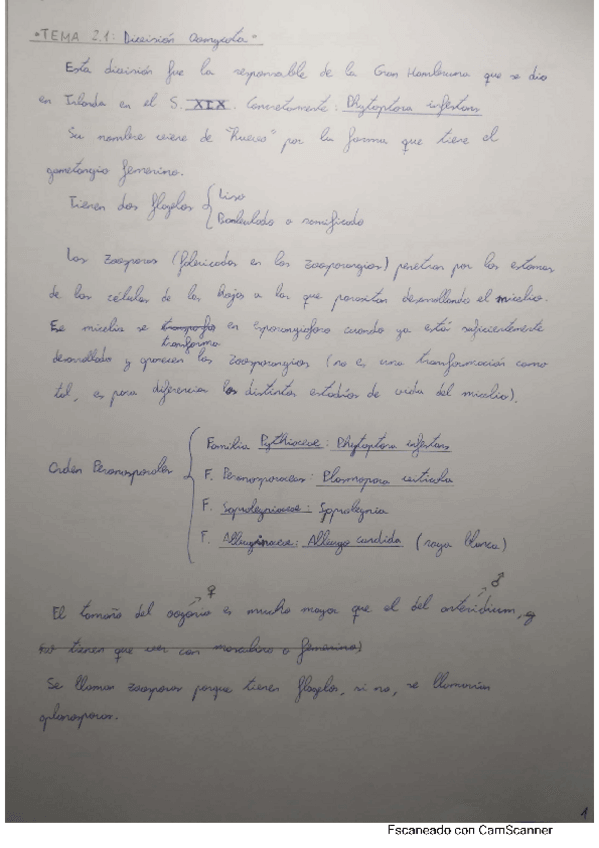 "TEMA 2.1: División Oomycota"
Esta división fue la responsable de la Gran Hambruna que se dio
en Irlanda en el S. XIX. Concretamente: Phytoptora infestans
Su nombre viene de "huevo" por la forma que tiene el
gametangio femenino.
Tienen dos flagelos
Liso
Barbulado o ramificado
Las zoosporas (fabricadas en los zoosporangios) penetran por los estomas
de las células de las hojas a las que parasitan desarrollando el micelio.
Ese micelio se en esporangioforo cuando ya está suficientemente
transforma
desarrollado y aparecen los zoosporangios (no es una transformación como
tal, es para diferenciar los distintos estadíos de vida del micelio).
Orden Peronosporales
Familia Pythiaceae: Phytoptora infestans
F. Peronosporaceae: Plasmopora viticula
F. Saprolegniaceae: Saprolegnia
F. Albuginaceae: Albugo candida (roya blanca)
♀ ♂
El tamaño del oogonio es mucho mayor que el del anteridium, y
no tienen que ver con masculino o femenino)
Se llaman zoosporas porque tienen flagelos, si no, se llamarían
aplanosporas.
1
Escaneado con CamScanner